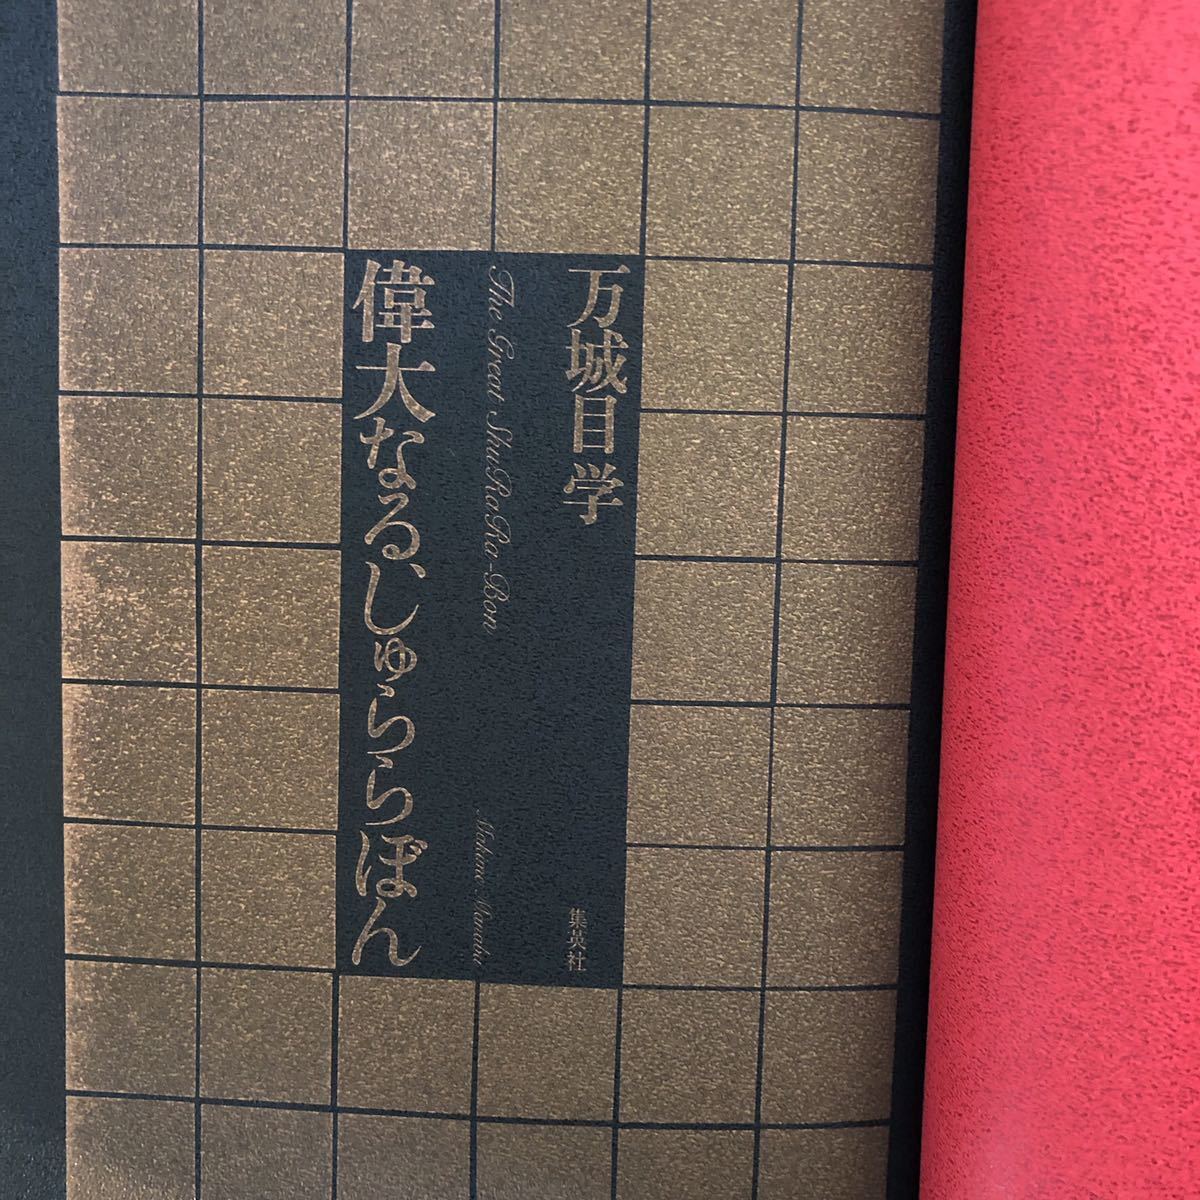 万城目学
集英社
The Great ShuRaRa-Bon
Makime Manabu
偉大なる、しゅららぼん